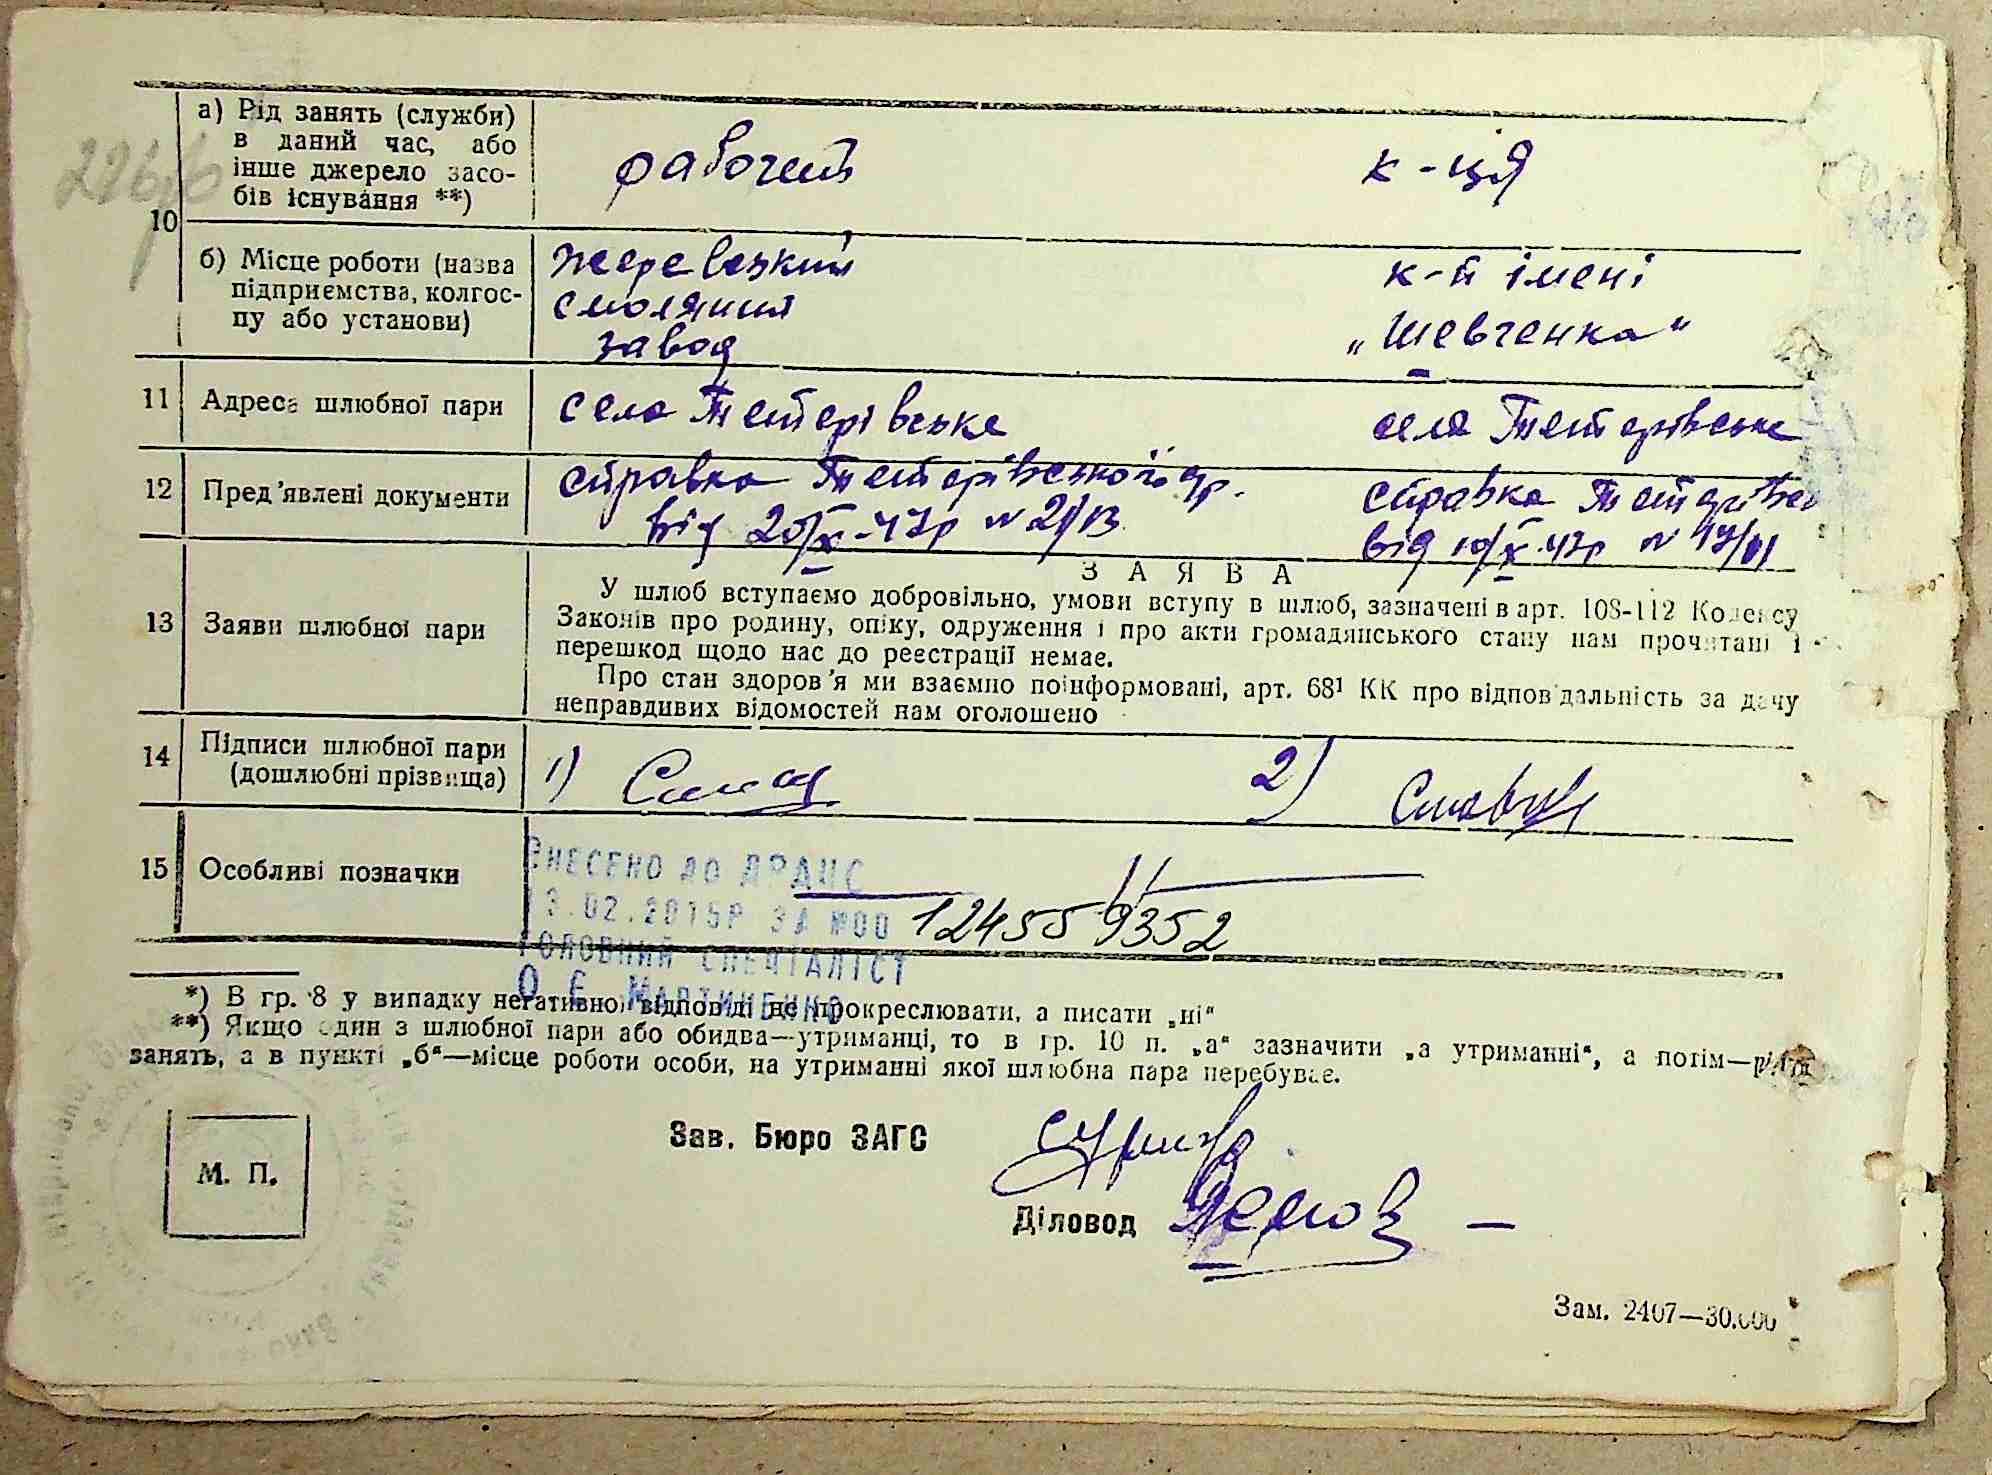 10
а) Рід занять (служби)
в даний час, або
інше джерело засо-
бів існування **)
рабочий
к-ця
б) Місце роботи (назва
підприємства, колгос-
пу або установи)
жеревецкий
смоляний
завод
к-п імені
„Шевченка“
11 Адреса шлюбної пари
село Тетерівське
села Тетерівське
12 Пред'явлені документи
справка Тетерівської
від 20/X-47р N
справка
від 10/X 47р N
13 Заяви шлюбної пари
ЗАЯВА
У шлюб вступаємо добровільно, умови вступу в шлюб, зазначені в арт. 108-112 Кодексу
Законів про родину, опіку, одруження і про акти громадянського стану нам прочитані і
перешкод щодо нас до реєстрації немає.
Про стан здоров'я ми взаємно поінформовані, арт. 68¹ КК про відповідальність за дачу
неправдивих відомостей нам оголошено
14 Підписи шлюбної пари
(дошлюбні прізвища)
1)
2)
15 Особливі позначки
ВНЕСЕНО ДО ДРАЦС
13.02.2015Р ЗА №00 1245559352
ГОЛОВНИЙ СПЕЦІАЛІСТ
О Є МАРТИНЕНКО
*) В гр. 8 у випадку негативної відповіді не прокреслювати, а писати „ні“
**) Якщо один з шлюбної пари або обидва—утриманці, то в гр. 10 п. „а“ зазначити „а утриманні“, а потім—рід
занять, а в пункті „б“—місце роботи особи, на утриманні якої шлюбна пара перебуває.
М. П.
Зав. Бюро ЗАГС
Діловод
Зам. 2407—30.000